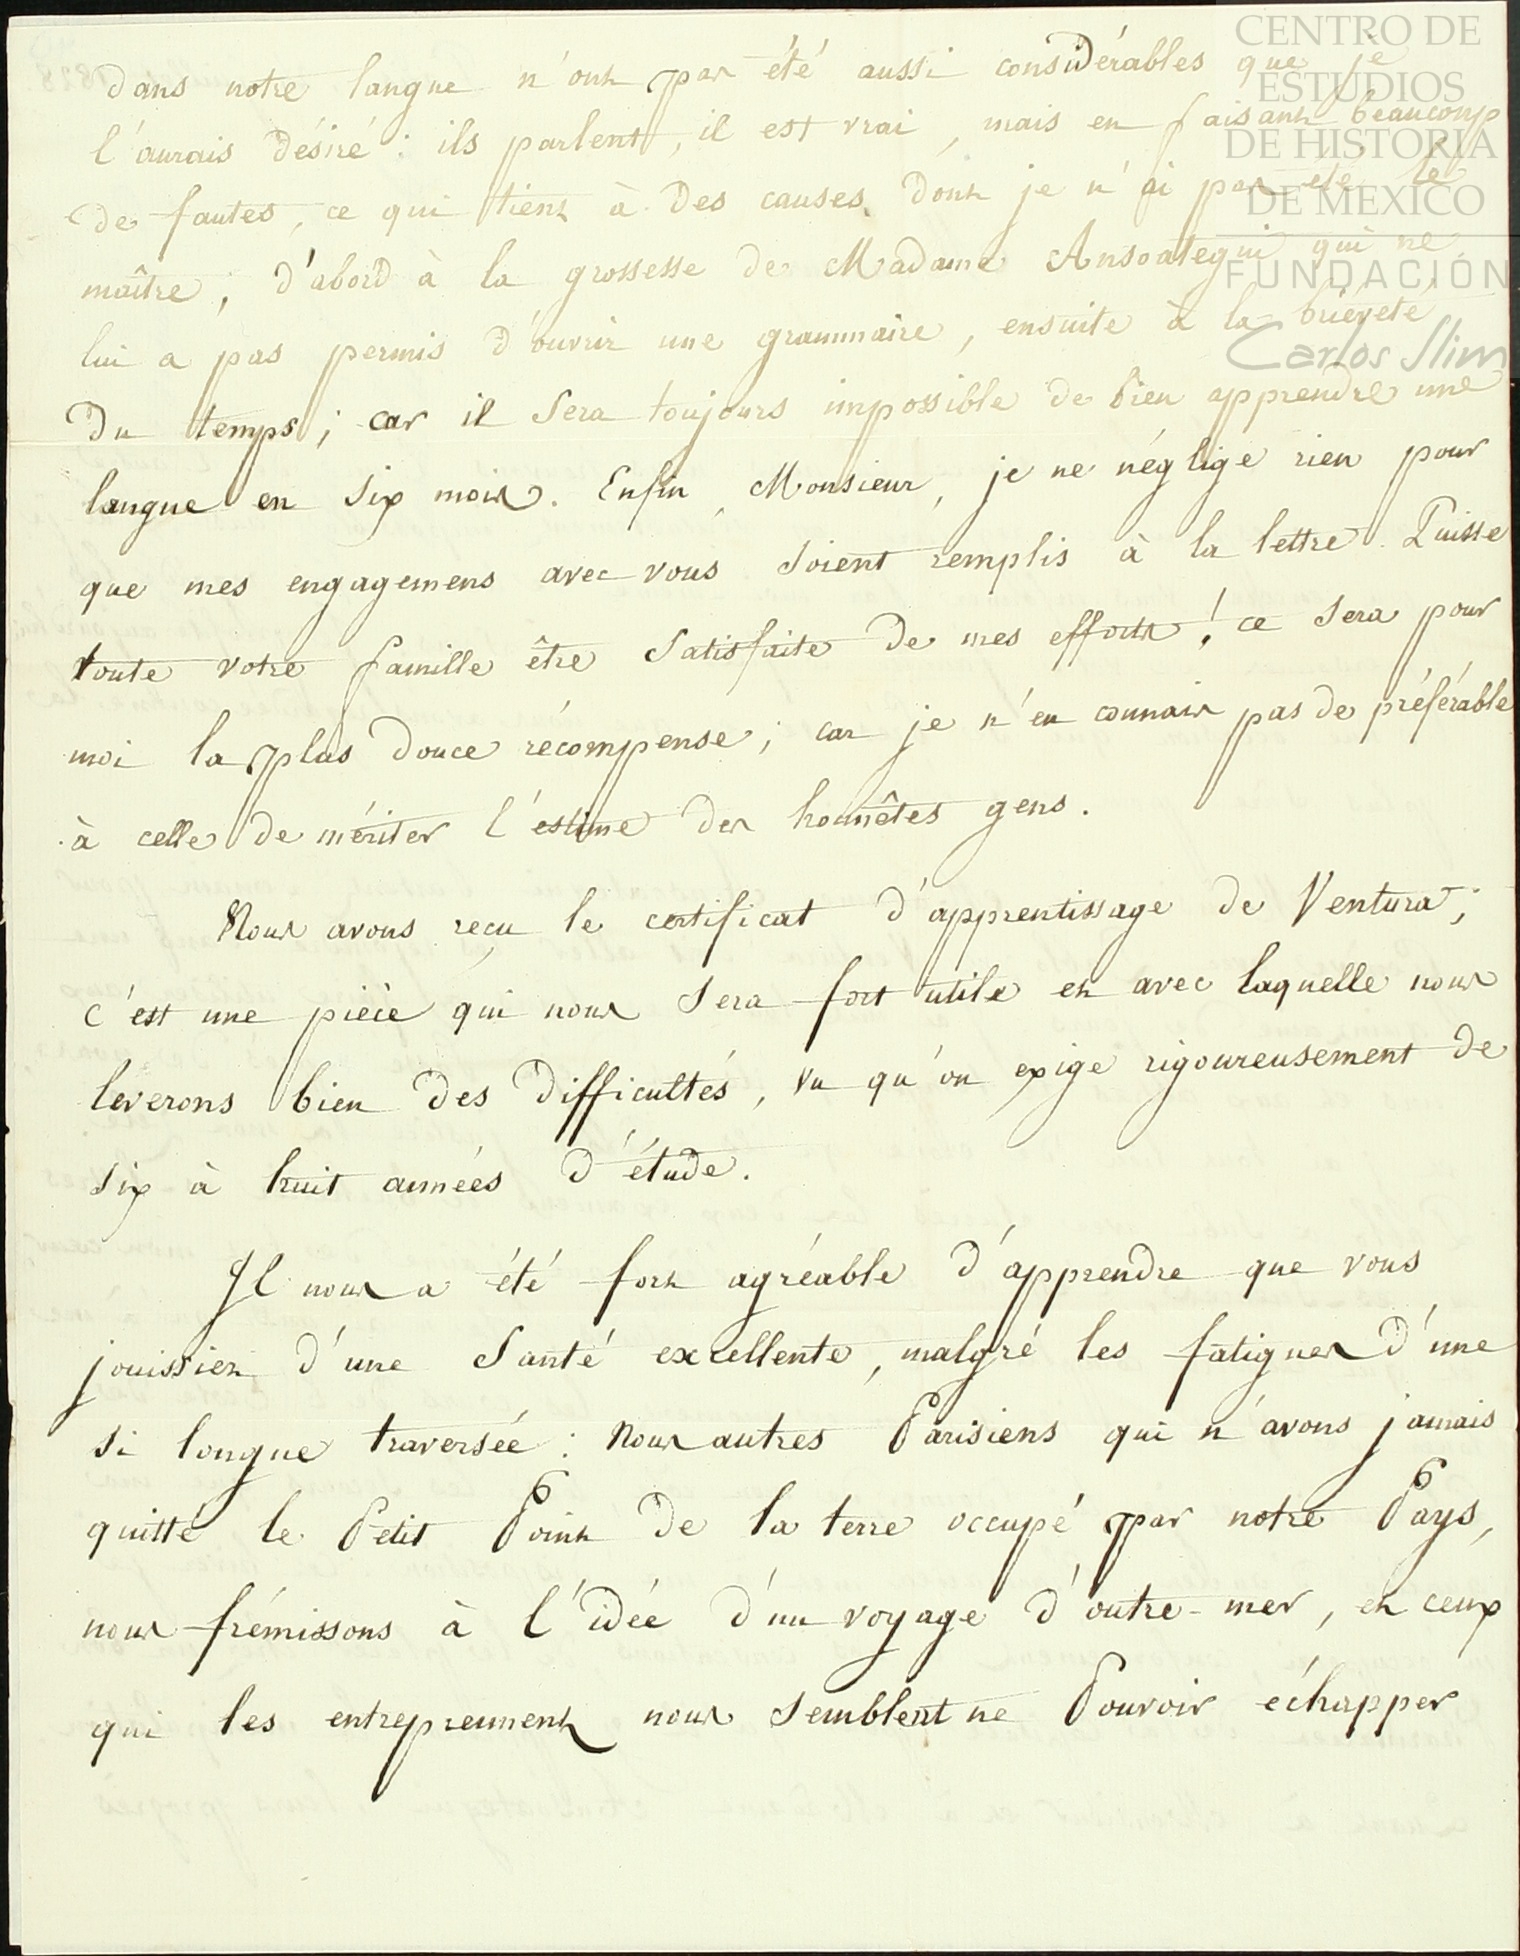 dans notre langue n'ont pas été aussi considérables que je
l'aurais désiré : ils parlent, il est vrai, mais en faisant beaucoup
de fautes, ce qui tient à des causes dont je n'ai pas été le
maître ; d'abord à la grossesse de Madame Ansoategui qui ne
lui a pas permis d'ouvrir une grammaire, ensuite à la brièveté
du temps ; car il sera toujours impossible de bien apprendre une
langue en six mois. Enfin, Monsieur, je ne néglige rien pour
que mes engagemens avec vous soient remplis à la lettre. Puisse
toute votre famille être satisfaite de mes efforts ! ce sera pour
moi la plus douce récompense ; car je n'en connais pas de préférable
à celle de mériter l'estime des honnêtes gens.
Nous avons reçu le certificat d'apprentissage de Ventura ;
c'est une pièce qui nous sera fort utile et avec laquelle nous
leverons bien des difficultés, vu qu'on exige rigoureusement de
six à huit années d'étude.
Il nous a été fort agréable d'apprendre que vous
jouissiez d'une santé excellente, malgré les fatigues d'une
si longue traversée : nous autres Parisiens qui n'avons jamais
quitté le Petit Point de la terre occupé par notre Pays,
nous frémissons à l'idée d'un voyage d'outre-mer, et ceux
qui les entreprennent nous semblent ne Pouvoir échapper
CENTRO DE
ESTUDIOS
DE HISTORIA
DE MEXICO
FUNDACIÓN
Carlos Slim